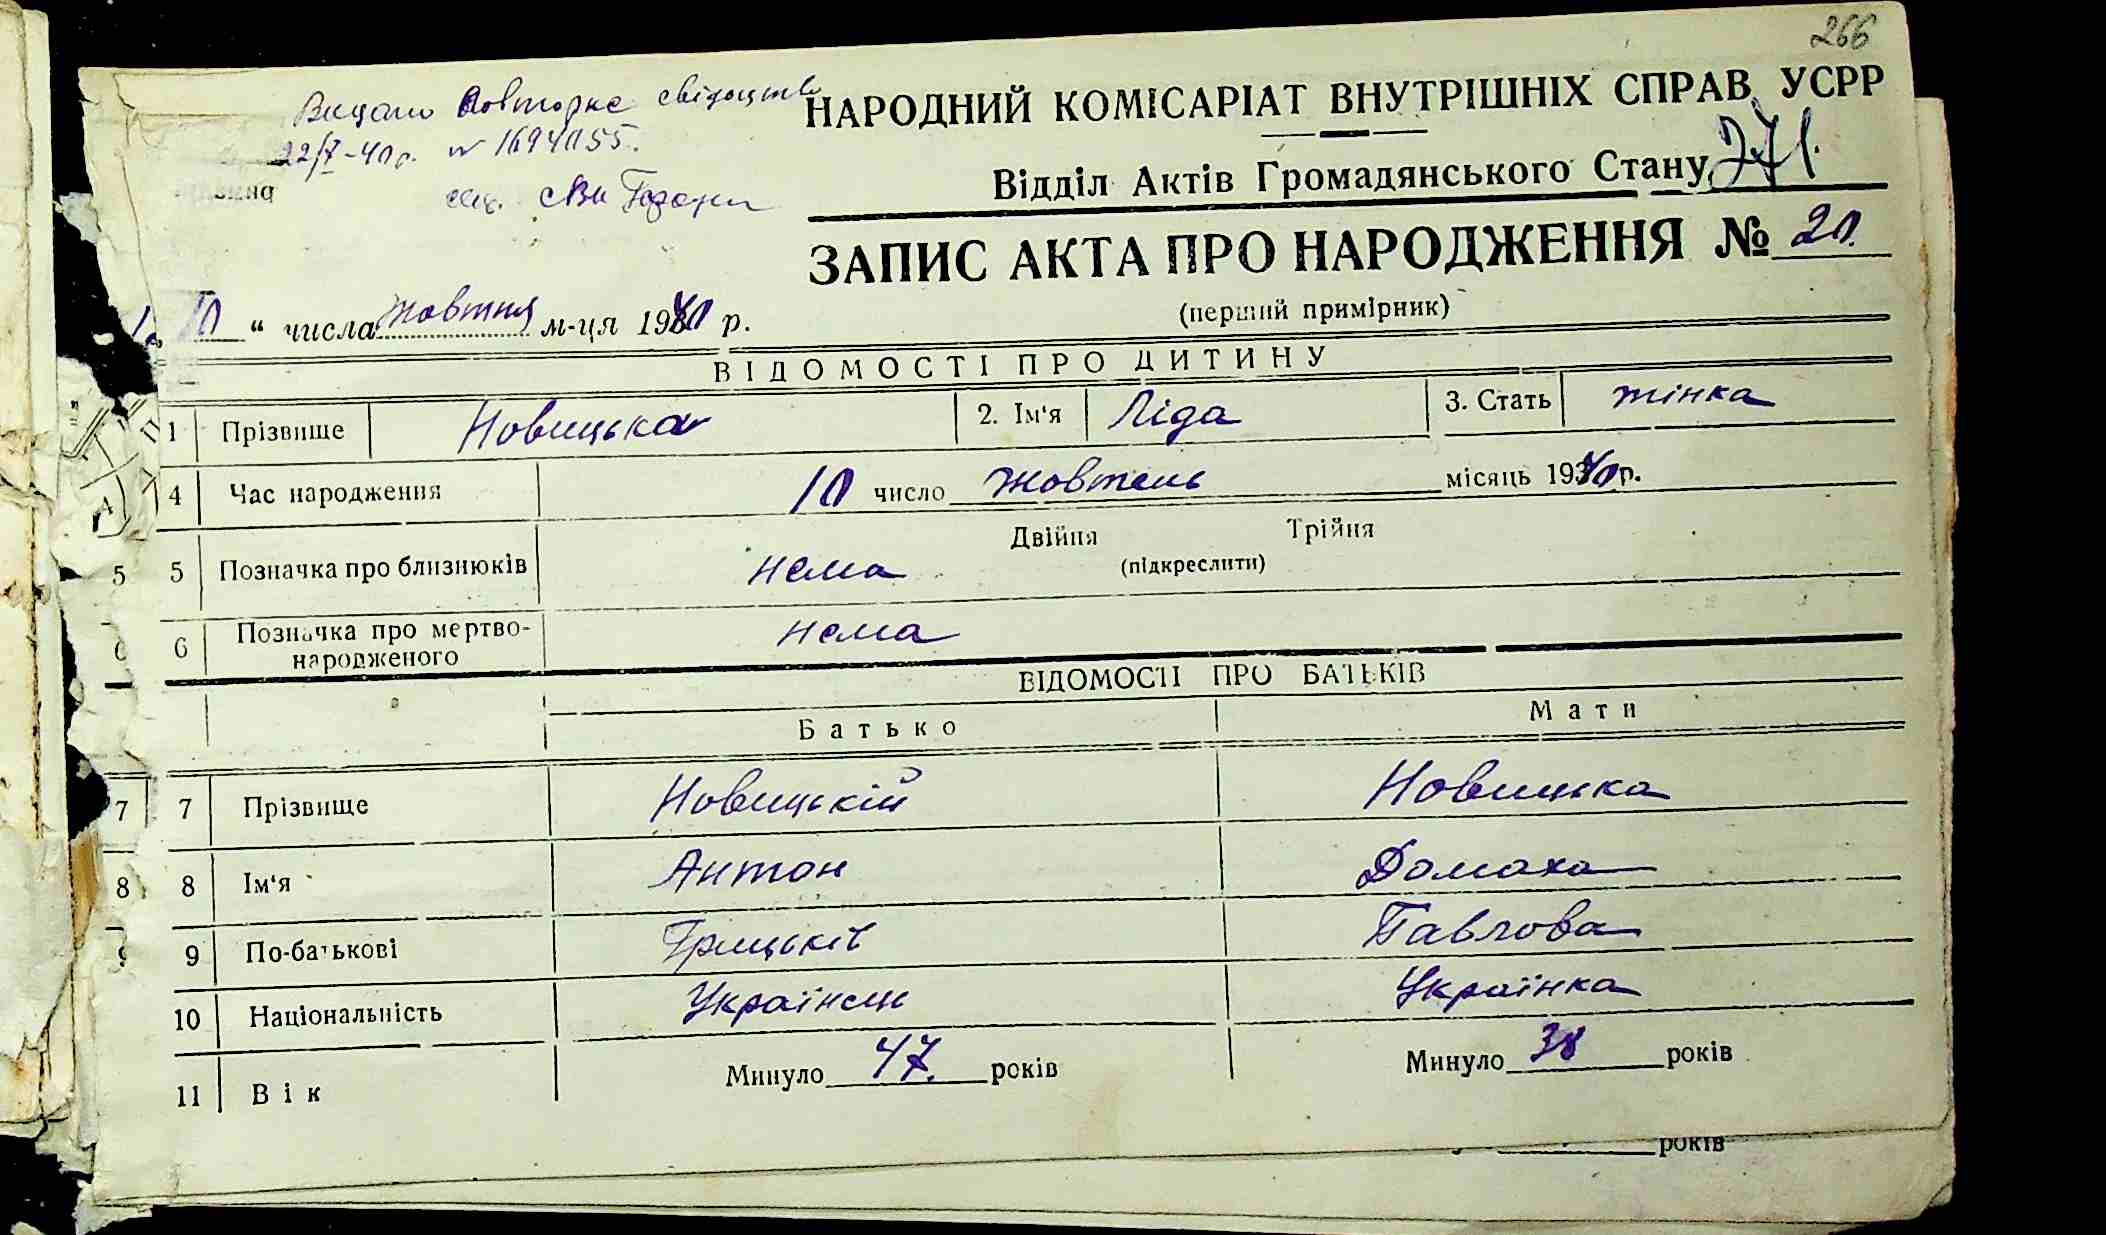 266
Видано повторне свідоцтво
22/X-40 р. № 1694055.
НАРОДНИЙ КОМІСАРІАТ ВНУТРІШНІХ СПРАВ УСРР
Відділ Актів Громадянського Стану 271.
ЗАПИС АКТА ПРО НАРОДЖЕННЯ № 20.
(перший примірник)
„10“ числа жовтня м-ця 1940 р.
ВІДОМОСТІ ПРО ДИТИНУ
1 Прізвище Новицька 2. Ім'я Ліда 3. Стать жінка
4 Час народження 10 число жовтень місяць 1940 р.
5 5 Позначка про близнюків нема Двійня Трійня
(підкреслити)
6 Позначка про мертво-
народженого нема
ВІДОМОСТІ ПРО БАТЬКІВ
Батько Мати
7 7 Прізвище Новицькій Новицька
8 8 Ім'я Антон Домаха
9 9 По-батькові Грицьків Павлова
10 Національність Українець Українка
11 Вік Минуло 47. років Минуло 38 років
років